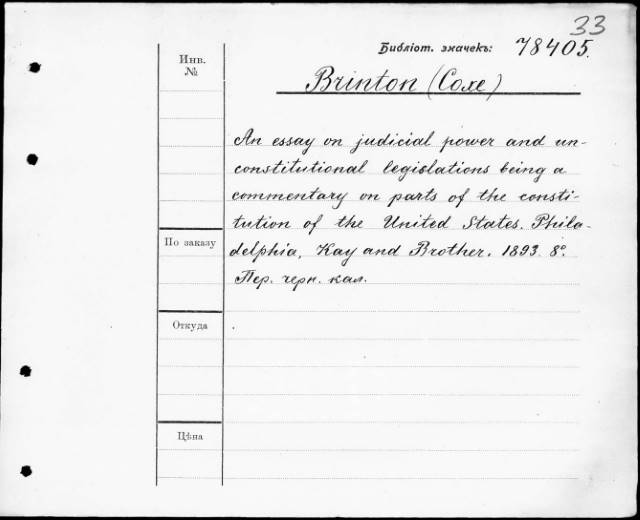 33
Библіот. значекъ: 78405.
Инв.
№
Brinton (Coxe)
An essay on judicial power and un-
constitutional legislations being a
commentary on parts of the consti-
tution of the United States. Phila-
По заказу
delphia, Kay and Brother. 1893. 8°.
Пер. черн. кал.
Откуда
Цѣна